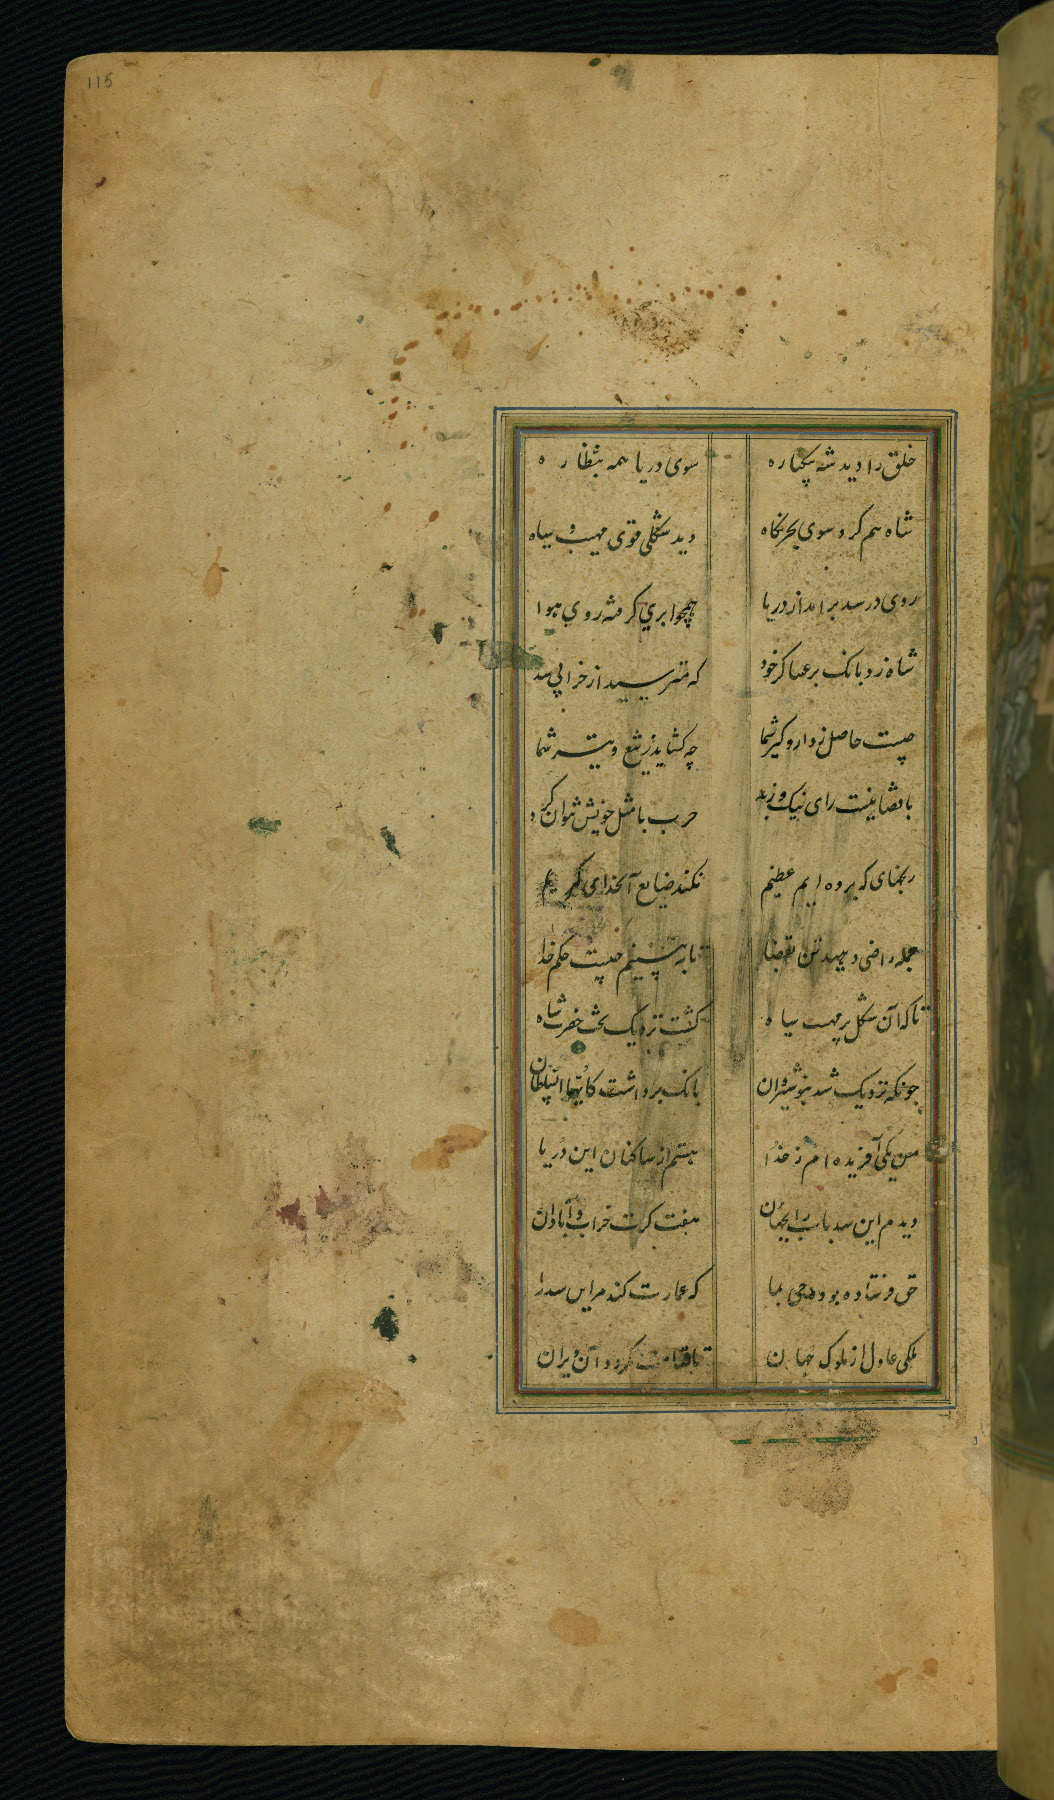 115
خلق را دید شه بیکباره سوی دریا همه بنظاره
شاه هم کرد سوی بحر نکاه دید شکلی قوی مهیب و سیاه
روی در سد برامد از دریا همچو ابری کرفته روی هوا
شاه زد بانک بر عساکر خود که مترسید از خرابی سد
چیست حاصل ز دار و کیر شما چه کشاید ز تیغ و تیر شما
با قضا نیست رای نیک و نه بد حرب با مثل خویش توان کرد
رنجهای که برده ایم عظیم نکند ضایع آن خدای کریم
جمله راضی دهید تن بقضا تا به بینیم چیست حکم خدا
تا که آن شکل پر مهیب سیاه کشت نزدیک تخت حضرت شاه
چونکه نزدیک شد بنوشیروان بانک برداشت کایها السلطان
من یکی آفریده ام ز خدا هستم از ساکنان این دریا
دیدم این سد باب را بجهان هفت کرت خراب و آبادان
حق فرستاده بود وحی بما که عمارت کند مر این سد را
ملکی عادل از ملوک جهان تا قیامت نکردد آن ویران